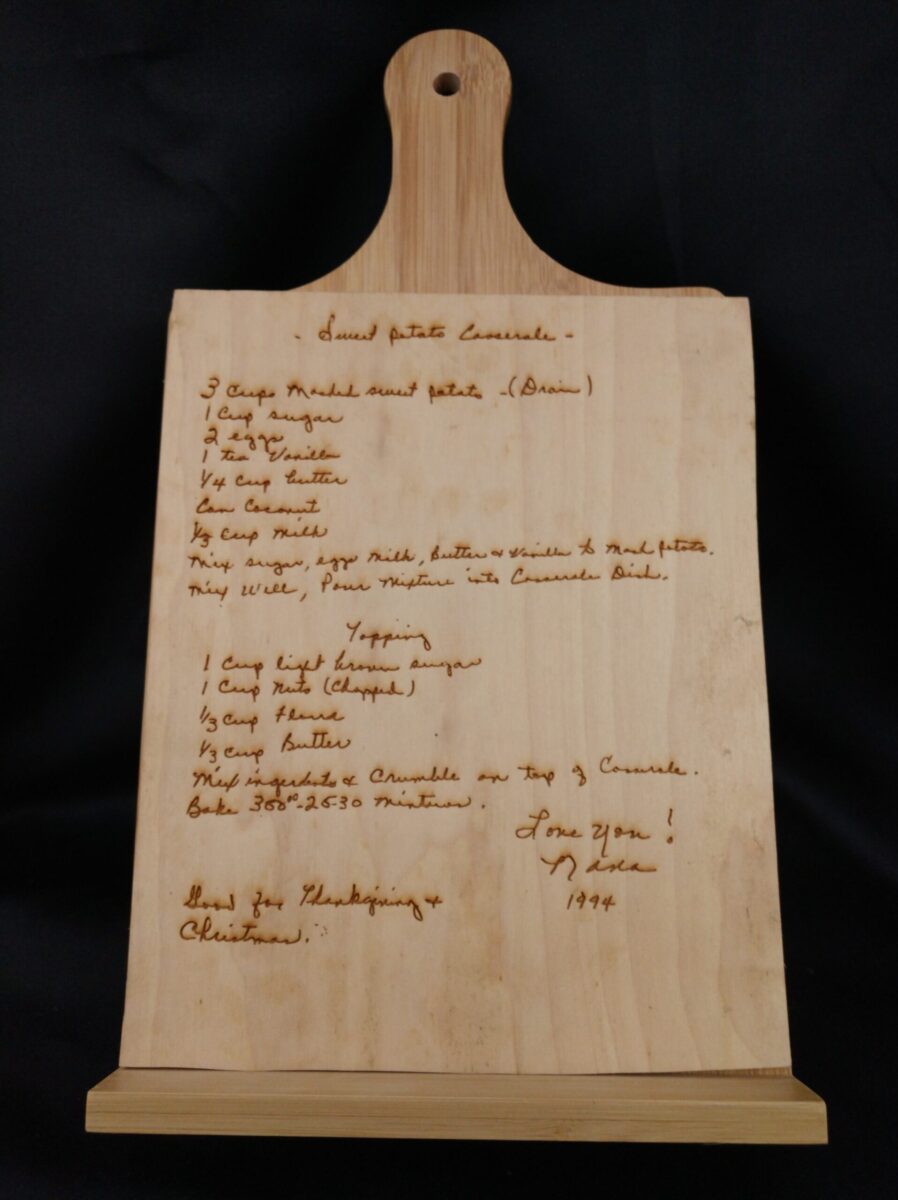 - Sweet potato Casserale -
3 Cups Mashed sweet potato - (Drain)
1 Cup sugar
2 eggs
1 tea Vanilla
1/4 cup butter
Can Coconut
1/3 cup milk
Mix sugar, eggs milk, Butter & Vanilla to Mash potato.
Mix Well, Pour Mixture into Casserale Dish.
Topping
1 Cup light brown sugar
1 Cup Nuts (Chopped)
1/3 cup
1/3 cup Butter
Mix & Crumble on top of Casserale.
Bake 25-30
Love You!
Nana
1994
Good for Thanksgiving &
Christmas.